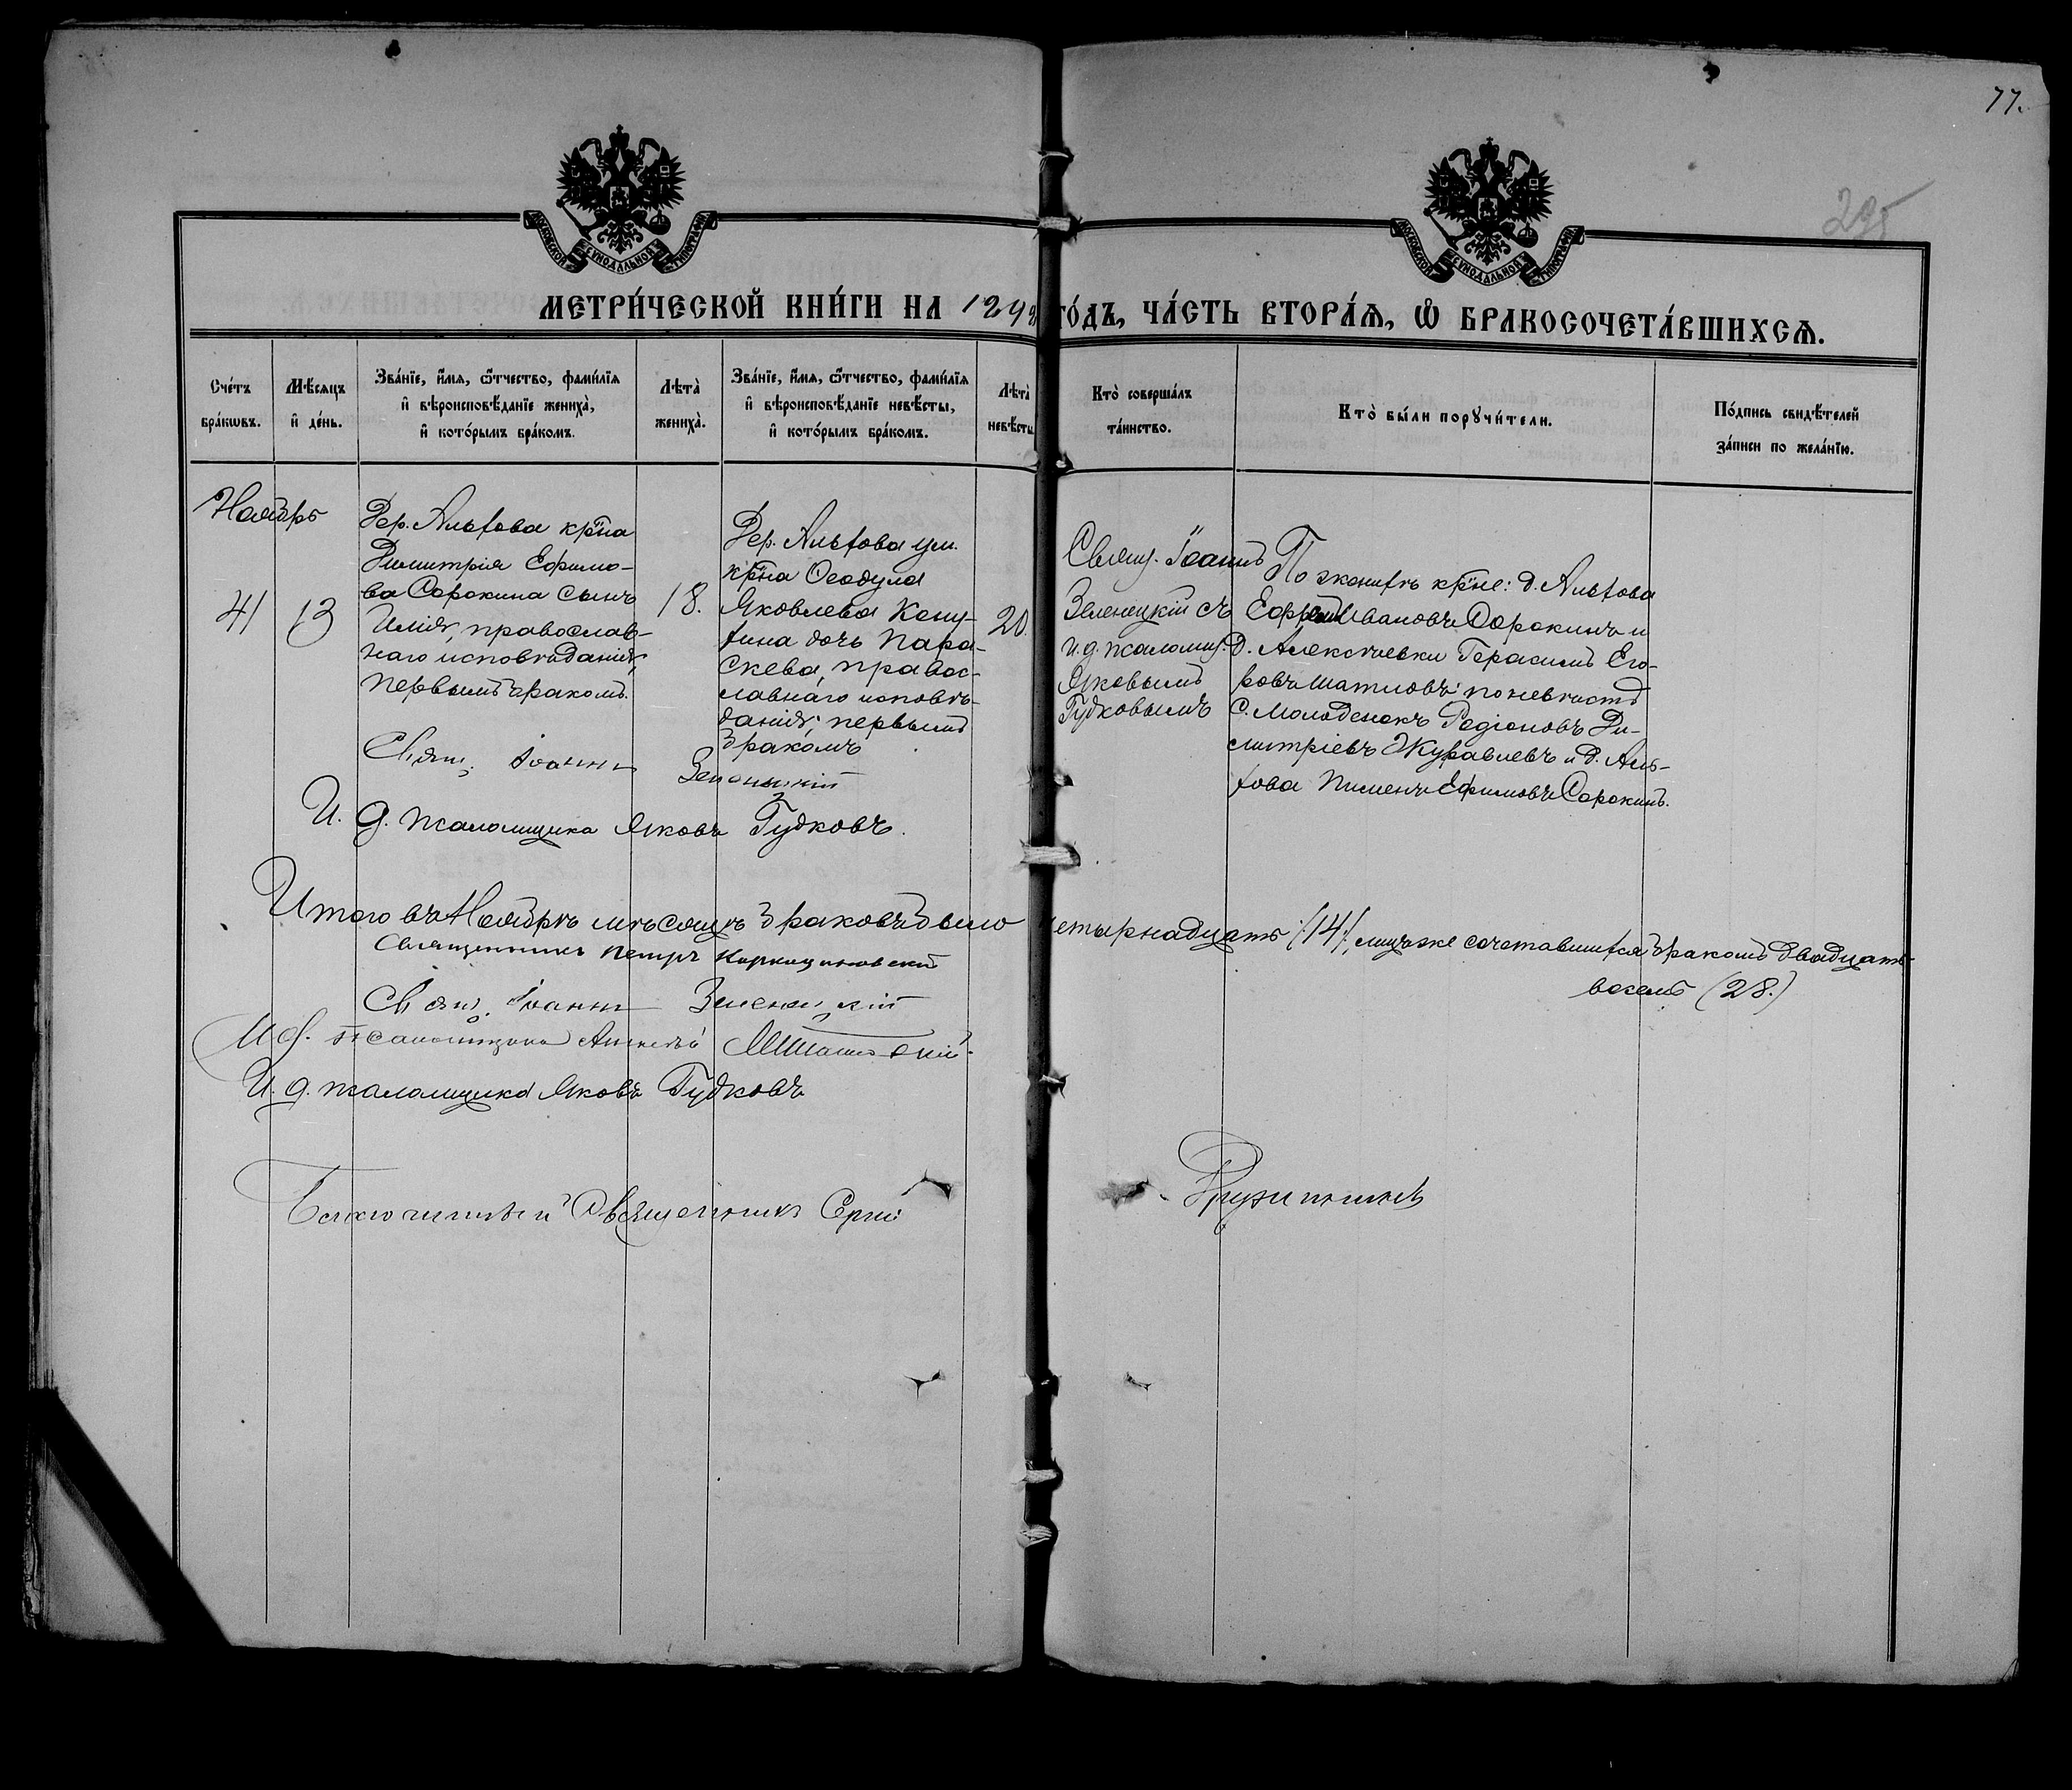 77.
295
МОСКОВСКОЙ СУНОДАЛЬНОЙ ТИПОГРАФІИ
МОСКОВСКОЙ СУНОДАЛЬНОЙ ТИПОГРАФІИ
МЕТРИ́ЧЕСКОЙ КНИ́ГИ НА 189 ГО́ДЪ, ЧА́СТЬ ВТОРА́Ѧ, Ѽ БРАКОСОЧЕТА́ВШИХСѦ.
Сче́тъ бра́кѡвъ.
Мѣ́сѧцъ и҆ де́нь.
Зва́нїе, и҆́мѧ, ѻ҆́тчество, фами́лїѧ и҆ вѣроисповѣ́данїе жениха̀, и҆ кото́рымъ бра́комъ.
Лѣта̀ жениха̀.
Зва́нїе, и҆́мѧ, ѻ҆́тчество, фами́лїѧ и҆ вѣроисповѣ́данїе невѣ́сты, и҆ кото́рымъ бра́комъ.
Лѣта̀ невѣ́сты
Кто̀ соверша́лъ та́инство.
Кто̀ бы́ли порꙋчи́тели.
По́дпись свидѣ́телей за́писи по жела́нїю.
Ноябрь
41
13
Дер. Альхова крⷭ҇на
Димитрія Ефимо-
ва Сорокина сынъ
Илія, православ-
наго исповѣданія,
первымъ бракомъ.
18.
Дер. Альхова ум.
крⷭ҇на Ѳеодула
Яковлева
дочь Пара-
скева, правос-
лавнаго исповѣ-
данія, первымъ
бракомъ
20.
Свящ. Іоаннъ
Зеленецкій съ
и.д. псаломщ.
Яковымъ
Гудковымъ
По женихѣ крⷭ҇не: д. Альхова
Ефремъ Ивановъ Сорокинъ и
д. Алексѣевки Герасимъ Его-
ровъ Шатиловъ; по невѣстѣ
с. Молоденокъ Родіоновъ Ди-
митріевъ Журавлевъ и д. Аль-
хова Пименъ Ефимовъ Сорокинъ.
Свящ. Іоаннъ Зеленецкій
И. д. псаломщика Яковъ Гудковъ.
Итого въ Ноябрѣ мѣсяцѣ браковъ было четырнадцать /14/, лицъ же сочетавшихся бракомъ двадцать
восемь (28.)
Священникъ Петръ
Свящ. Іоаннъ Зеленецкій
И д. псаломщика Алексѣй
И. д. псаломщика Яковъ Гудковъ
Благочинный Священникъ Сергій Дружининъ